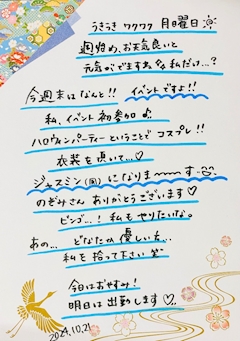 うきうき ワクワク 月曜日☀
週始め、お天気良いと
元気がでますね 私だけ…?
今週末はなんと!! イベントですよ!!
私、イベント初参加♪
ハロウィンパーティーということで コスプレ!!
衣装を頂いて…♡
ジャスミン(国)になりま〜〜す
のぞみさん ありがとうございます♡
ビンゴ…! 私もやりたいな。
あの… どなたか優しい方…
私を拾って下さい 笑
今日はおやすみ!
明日は出勤します♡
2024.10.21